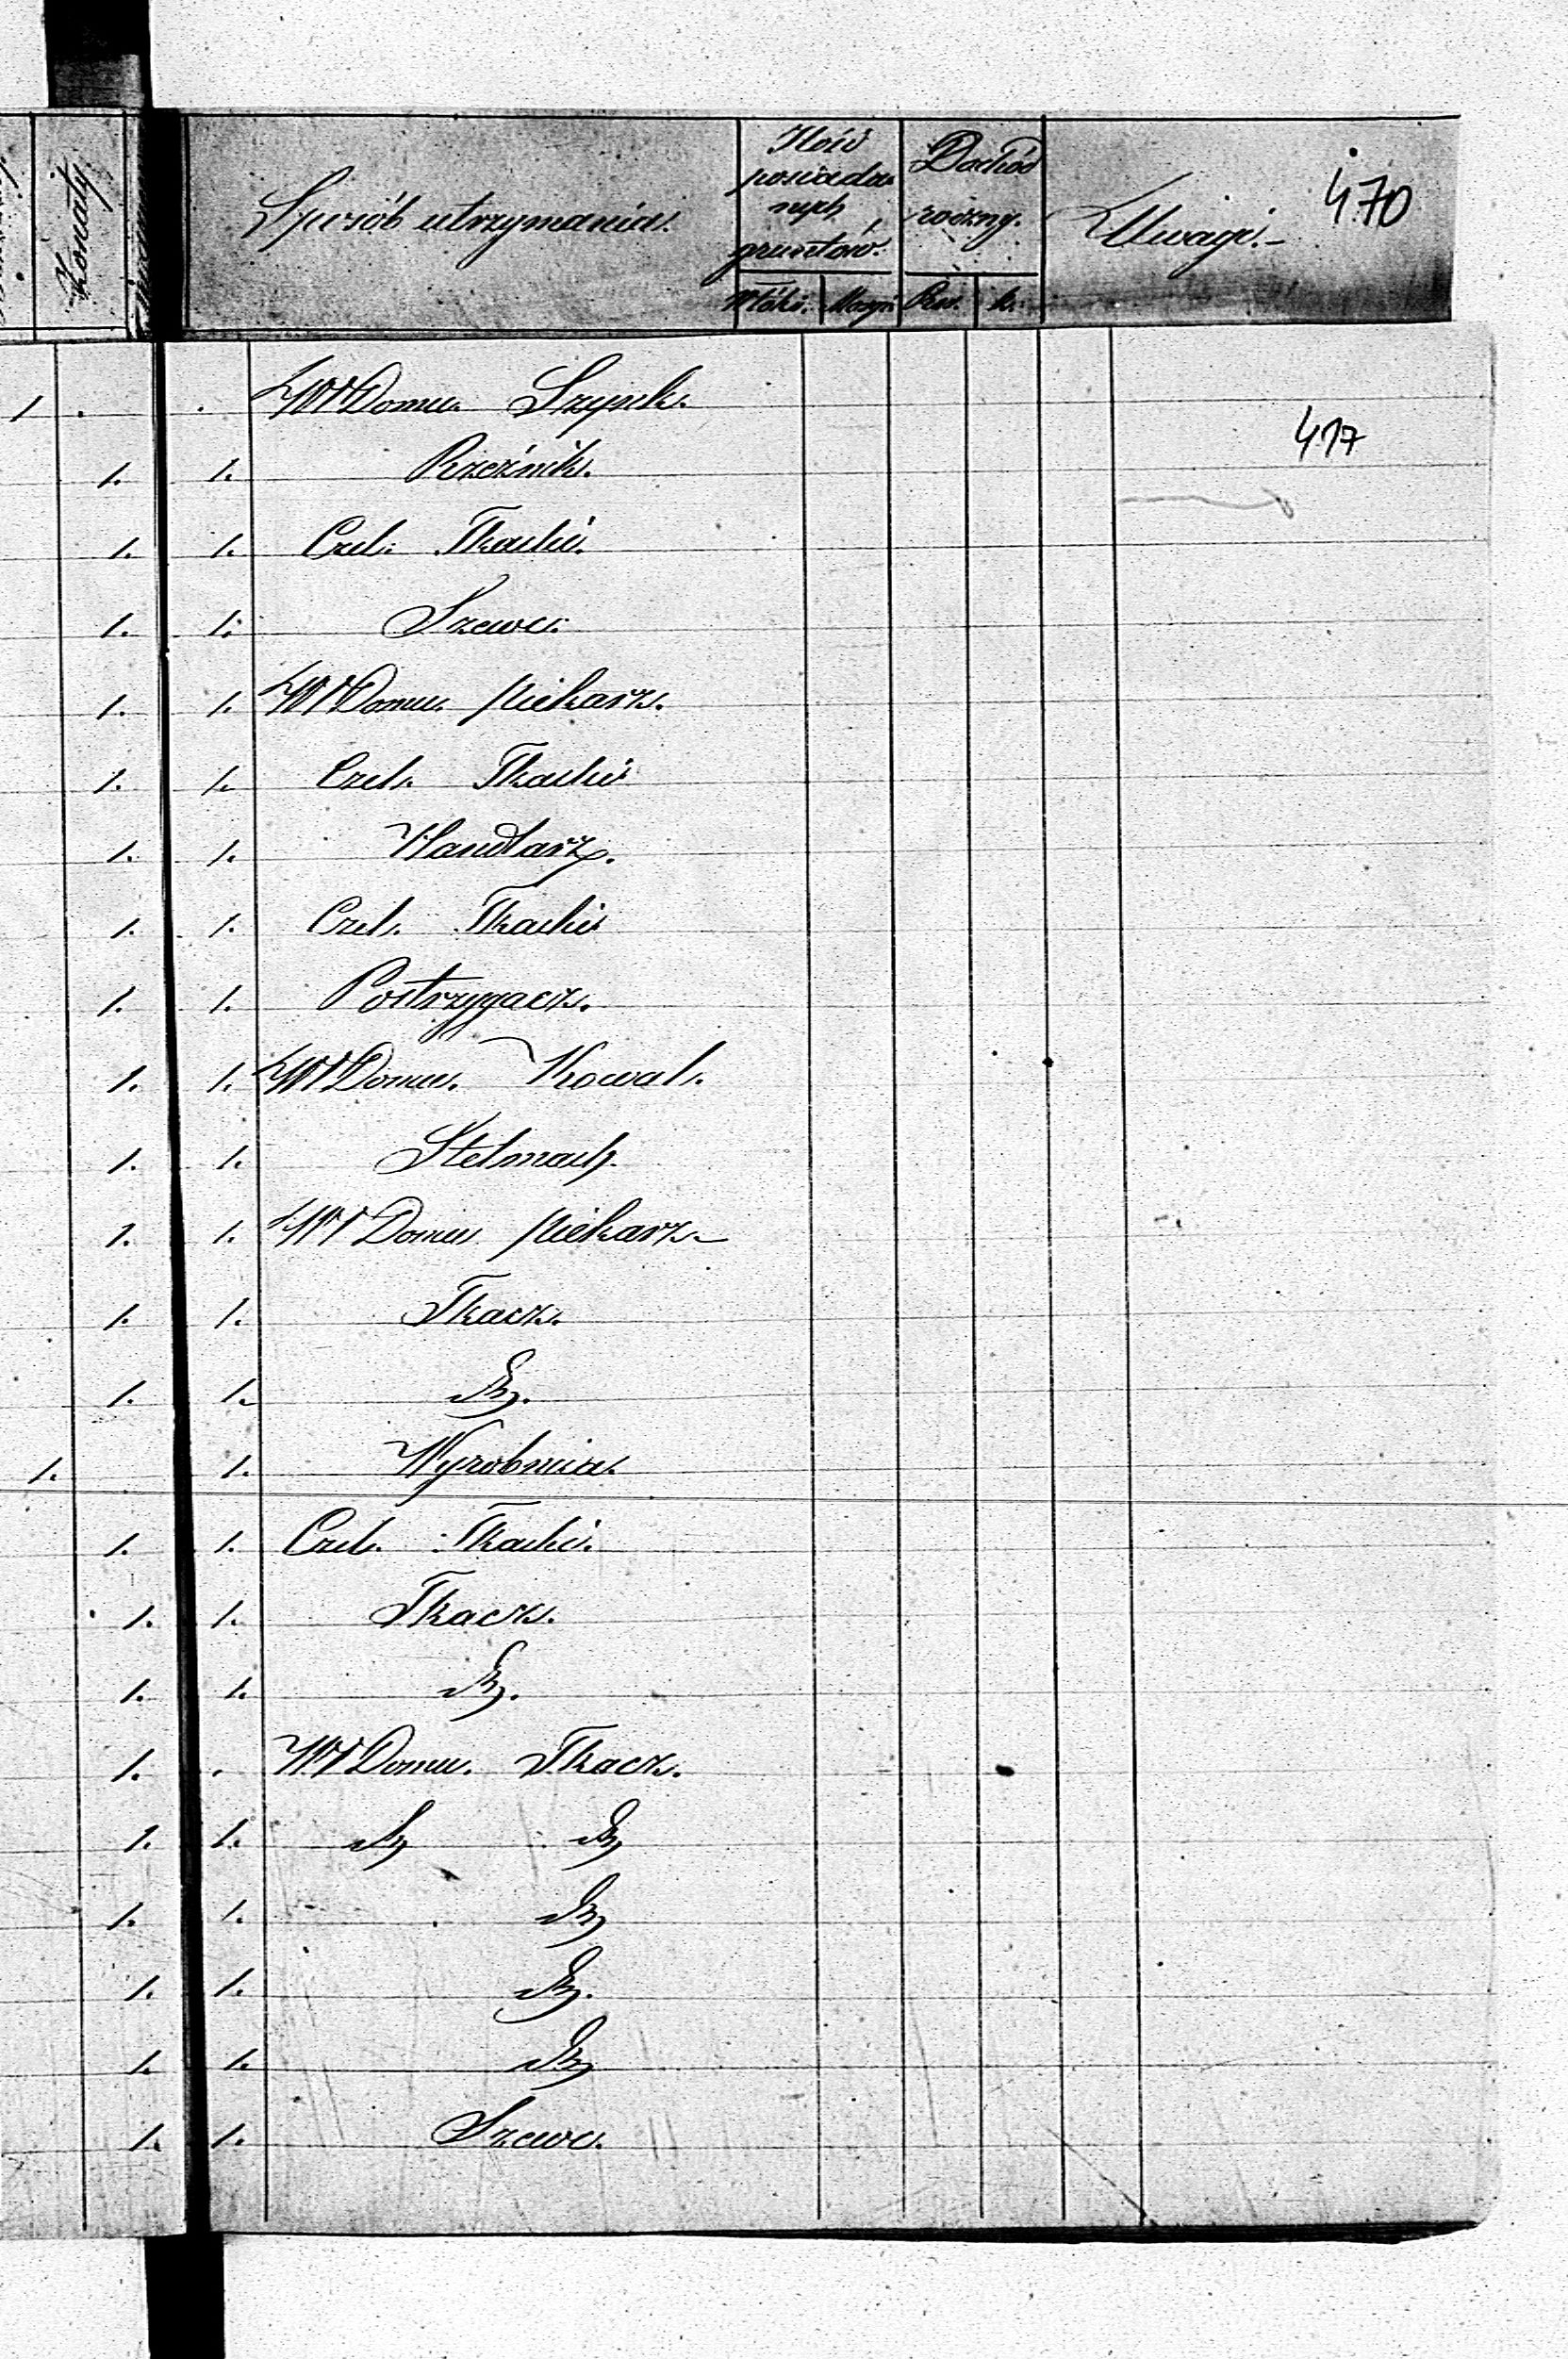 Żonaty
Sposób utrzymania.
Ilość
posiada
nych
gruntów.
Włók. Morg.
Dochód
roczny.
Rsr. k.
Uwagi.
470
1 . . WDomu. Szynk.
417
1. 1. Rzeźnik.
1. 1. Czel. Tkacki.
1. 1. Szewc.
1. 1. WDomu. Piekarz.
1. 1. Czel. Tkacki
1. 1. Handlarz.
1. 1. Czel. Tkacki
1. 1. Postrzygacz.
1. 1. WDomu. Kowal.
1. 1. Stelmach.
1. 1. WDomu Piekarz
1. 1. Tkacz.
1. 1.
1. 1. Wyrobnica.
1. 1. Czel. Tkacki.
1. 1. Tkacz.
1. 1.
1. . WDomu. Tkacz.
1. 1.
1. 1.
1. 1.
1. 1.
1. 1. Szewc.